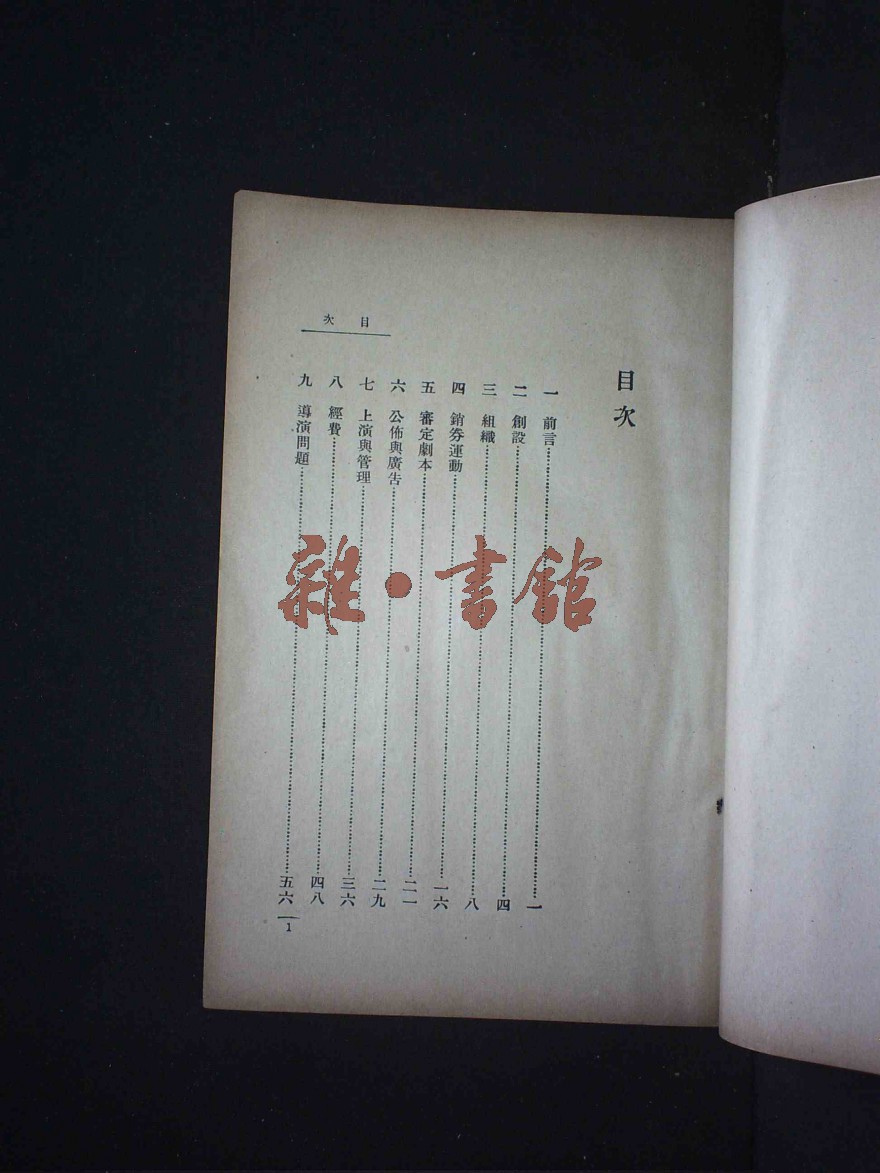 目次
一 前言……一
二 創設……四
三 組織……八
四 銷券運動……一六
五 審定劇本……二一
六 公佈與廣告……二九
七 上演與管理……三六
八 經費……四八
九 導演問題……五六
次 目
1
雜·書館